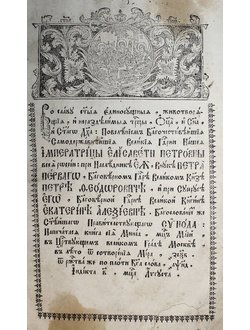 Во славу стыя единосущныя, животворѧ
щїѧ, и нераздѣлимыѧ трⷪ҇цы, Оц҃а, и Сн҃а,
и Ст҃агѡ Дх҃а: Повелѣнїемъ Бл҃гочестивѣйшїѧ
Самодержавнѣйшїѧ Великїѧ Гдⷭ҇рни Нашеѧ
ІМПЕРАТРИЦЫ ЕЛІСАВЕТЫ ПЕТРОВНЫ
всеѧ рѡссїи: при Наслѣдникѣ Еѧ, Внукѣ ПЕТРА
ПЕРВАГѠ, Бл҃говѣрномъ Гдⷭ҇рѣ Великомъ Кнѧзѣ
ПЕТРѢ ѲЕѠДОРОВИЧѢ, и при Супругѣ
ЕГѠ, Бл҃говѣрной Гдⷭ҇рнѣ Великой Кнѧгинѣ
ЕКАТЕРИНѢ АЛЕѮІЕВНѢ, Бл҃гословенїемъ же
Ст҃ѣйшагѡ Правителствующагѡ СѴНОДА:
Напечатася книга сїѧ Минеа, мцⷭ҇ъ
въ Црⷭ҇твующемъ великомъ градѣ Москвѣ
въ лѣто ѿ сотворенїѧ мїра
ѿ ржⷭ҇тва же по плоти Бг҃а слова
їндїкта мцⷭ҇а Аѵгуста